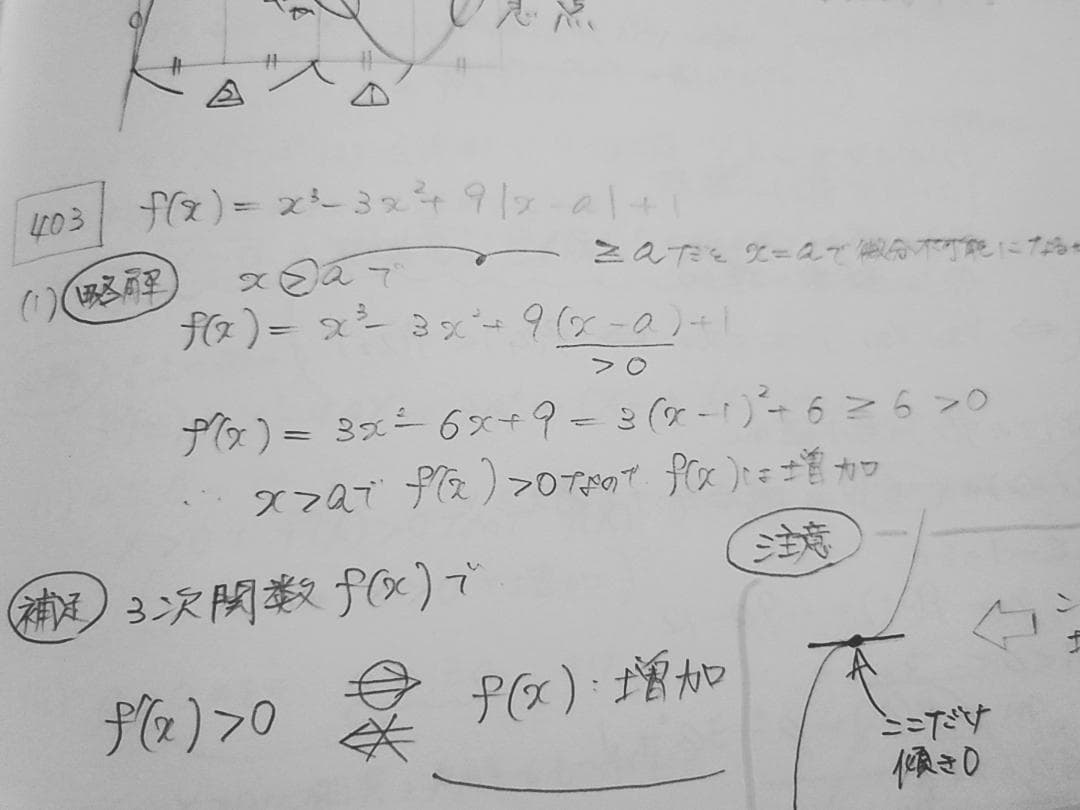 点
② ①
403 f(x) = x³ - 3x² + 9|x-a| + 1
(1) 略解 x ≧ a で ≧ a だと x = a で 微分不可能になる
f(x) = x³ - 3x² + 9(x-a) + 1
> 0
f'(x) = 3x² - 6x + 9 = 3(x-1)² + 6 ≧ 6 > 0
∴ x > a で f'(x) > 0 なので f(x) は 増加
注意
補足 3次関数 f(x) で
f'(x) > 0 f(x) : 増加
ここだけ
傾き0